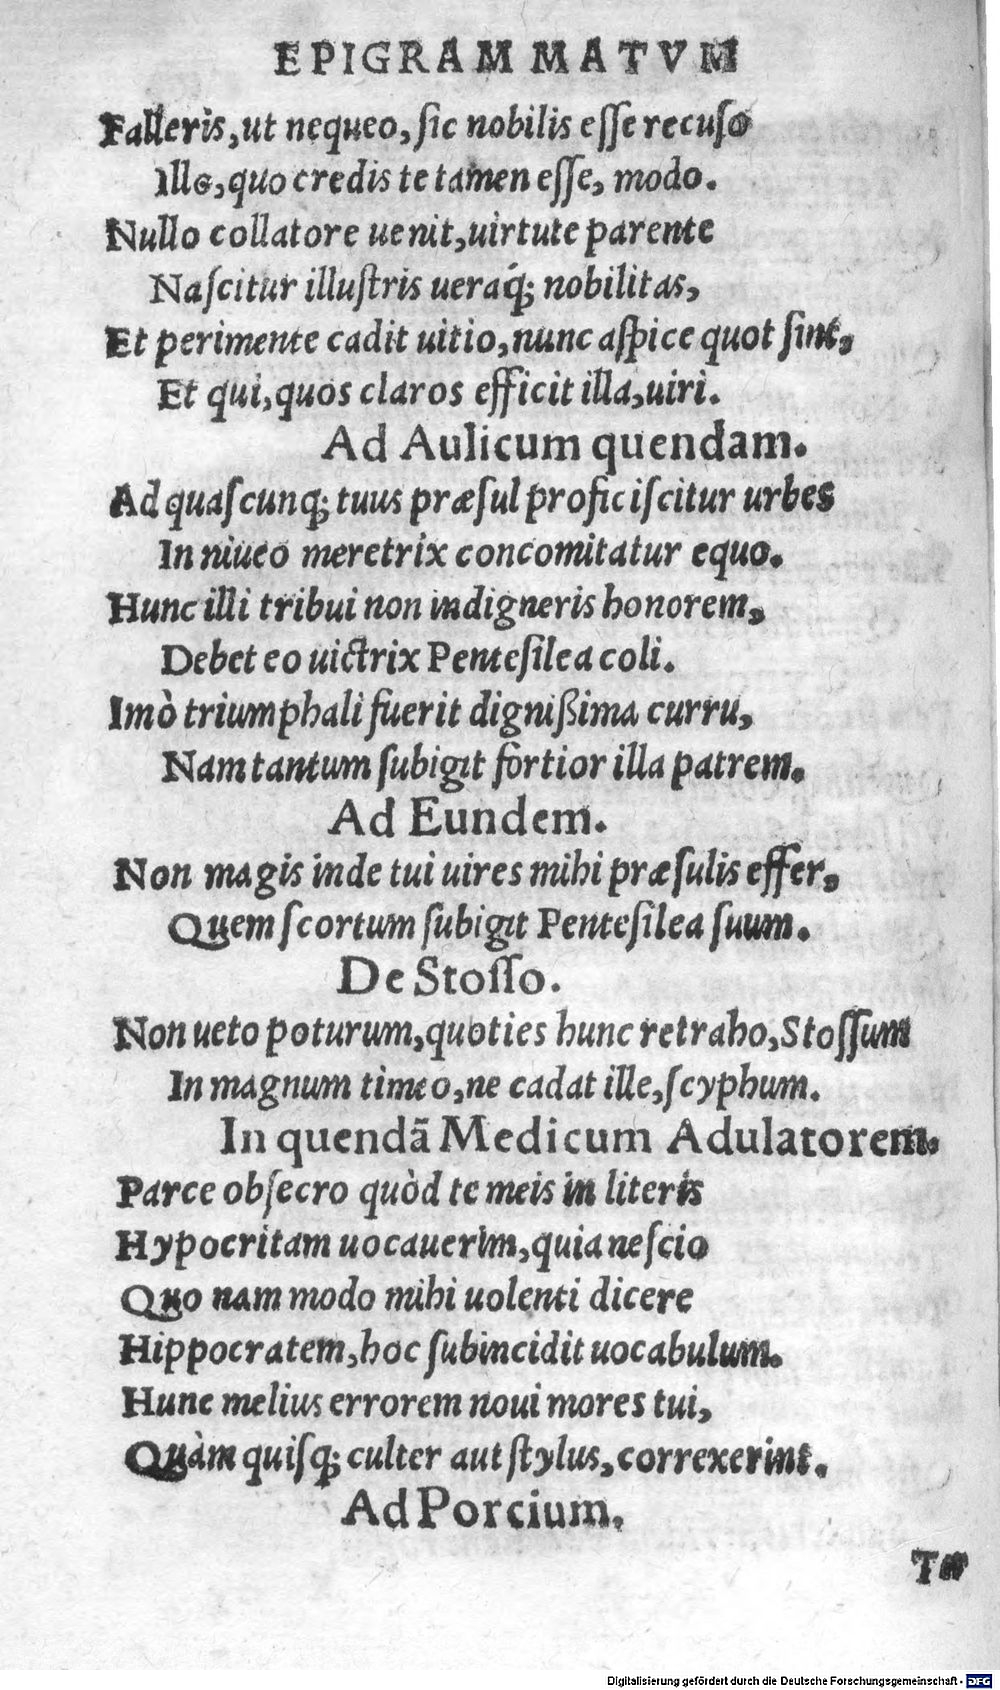 EPIGRAMMATVM
Falleris, ut nequeo, sic nobilis esse recuso
Illo, quo credis te tamen esse, modo.
Nullo collatore uenit, uirtute parente
Nascitur illustris ueraq́; nobilitas,
Et perimente cadit uitio, nunc aspice quot sint,
Et qui, quos claros efficit illa, uiri.
Ad Aulicum quendam.
Ad quascunq; tuus præsul proficiscitur urbes
In niueo meretrix concomitatur equo.
Hunc illi tribui non indigneris honorem,
Debet eo uictrix Pentesilea coli.
Imò triumphali fuerit dignißima curru,
Nam tantum subigit fortior illa patrem.
Ad Eundem.
Non magis inde tui uires mihi præsulis effer,
Quem scortum subigit Pentesilea suum.
De Stosso.
Non ueto poturum, quoties hunc retraho, Stossum
In magnum timeo, ne cadat ille, scyphum.
In quendã Medicum Adulatorem.
Parce obsecro quòd te meis in literis
Hypocritam uocauerim, quia nescio
Quo nam modo mihi uolenti dicere
Hippocratem, hoc subincidit uocabulum.
Hunc melius errorem noui mores tui,
Quàm quisq; culter aut stylus, correxerint.
Ad Porcium.
Tu
Digitalisierung gefördert durch die Deutsche Forschungsgemeinschaft - DFG